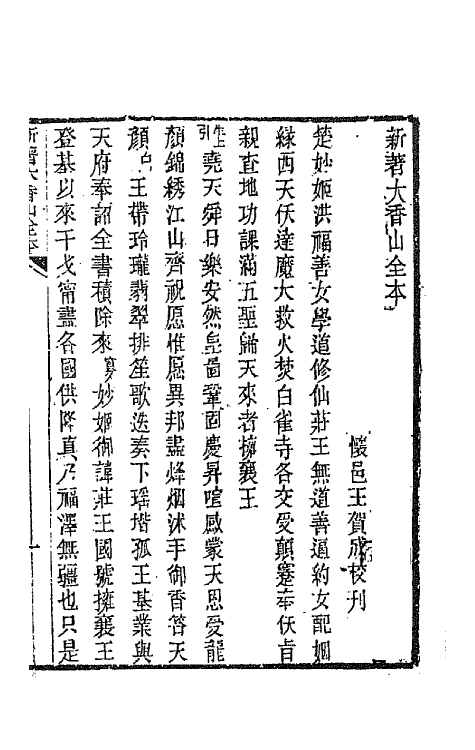 新著大香山全本
懷邑王賀成校刊
楚妙姬洪福善女學道修仙莊王無道善逼約女配姻
緣西天伏達魔大救火焚白雀寺各交受顛蹇奉伏旨
親查地功課滿五聖歸天來者擁襄王
引 堯天舜日樂安然皇啚鞏固慶昇喧感蒙天恩受龍
顏錦綉江山齊祝愿惟愿異邦盡烽烟沐手御香答天
顏白 王帶玲瓏翡翠排笙歌迭奏下瑶堦孤王基業與
天府奉詔全書積除來 寡妙姬御諱莊王國號擁襄王
登基以來干戈甯盡各國供降真乃福澤無疆也只是
新著大香山全本